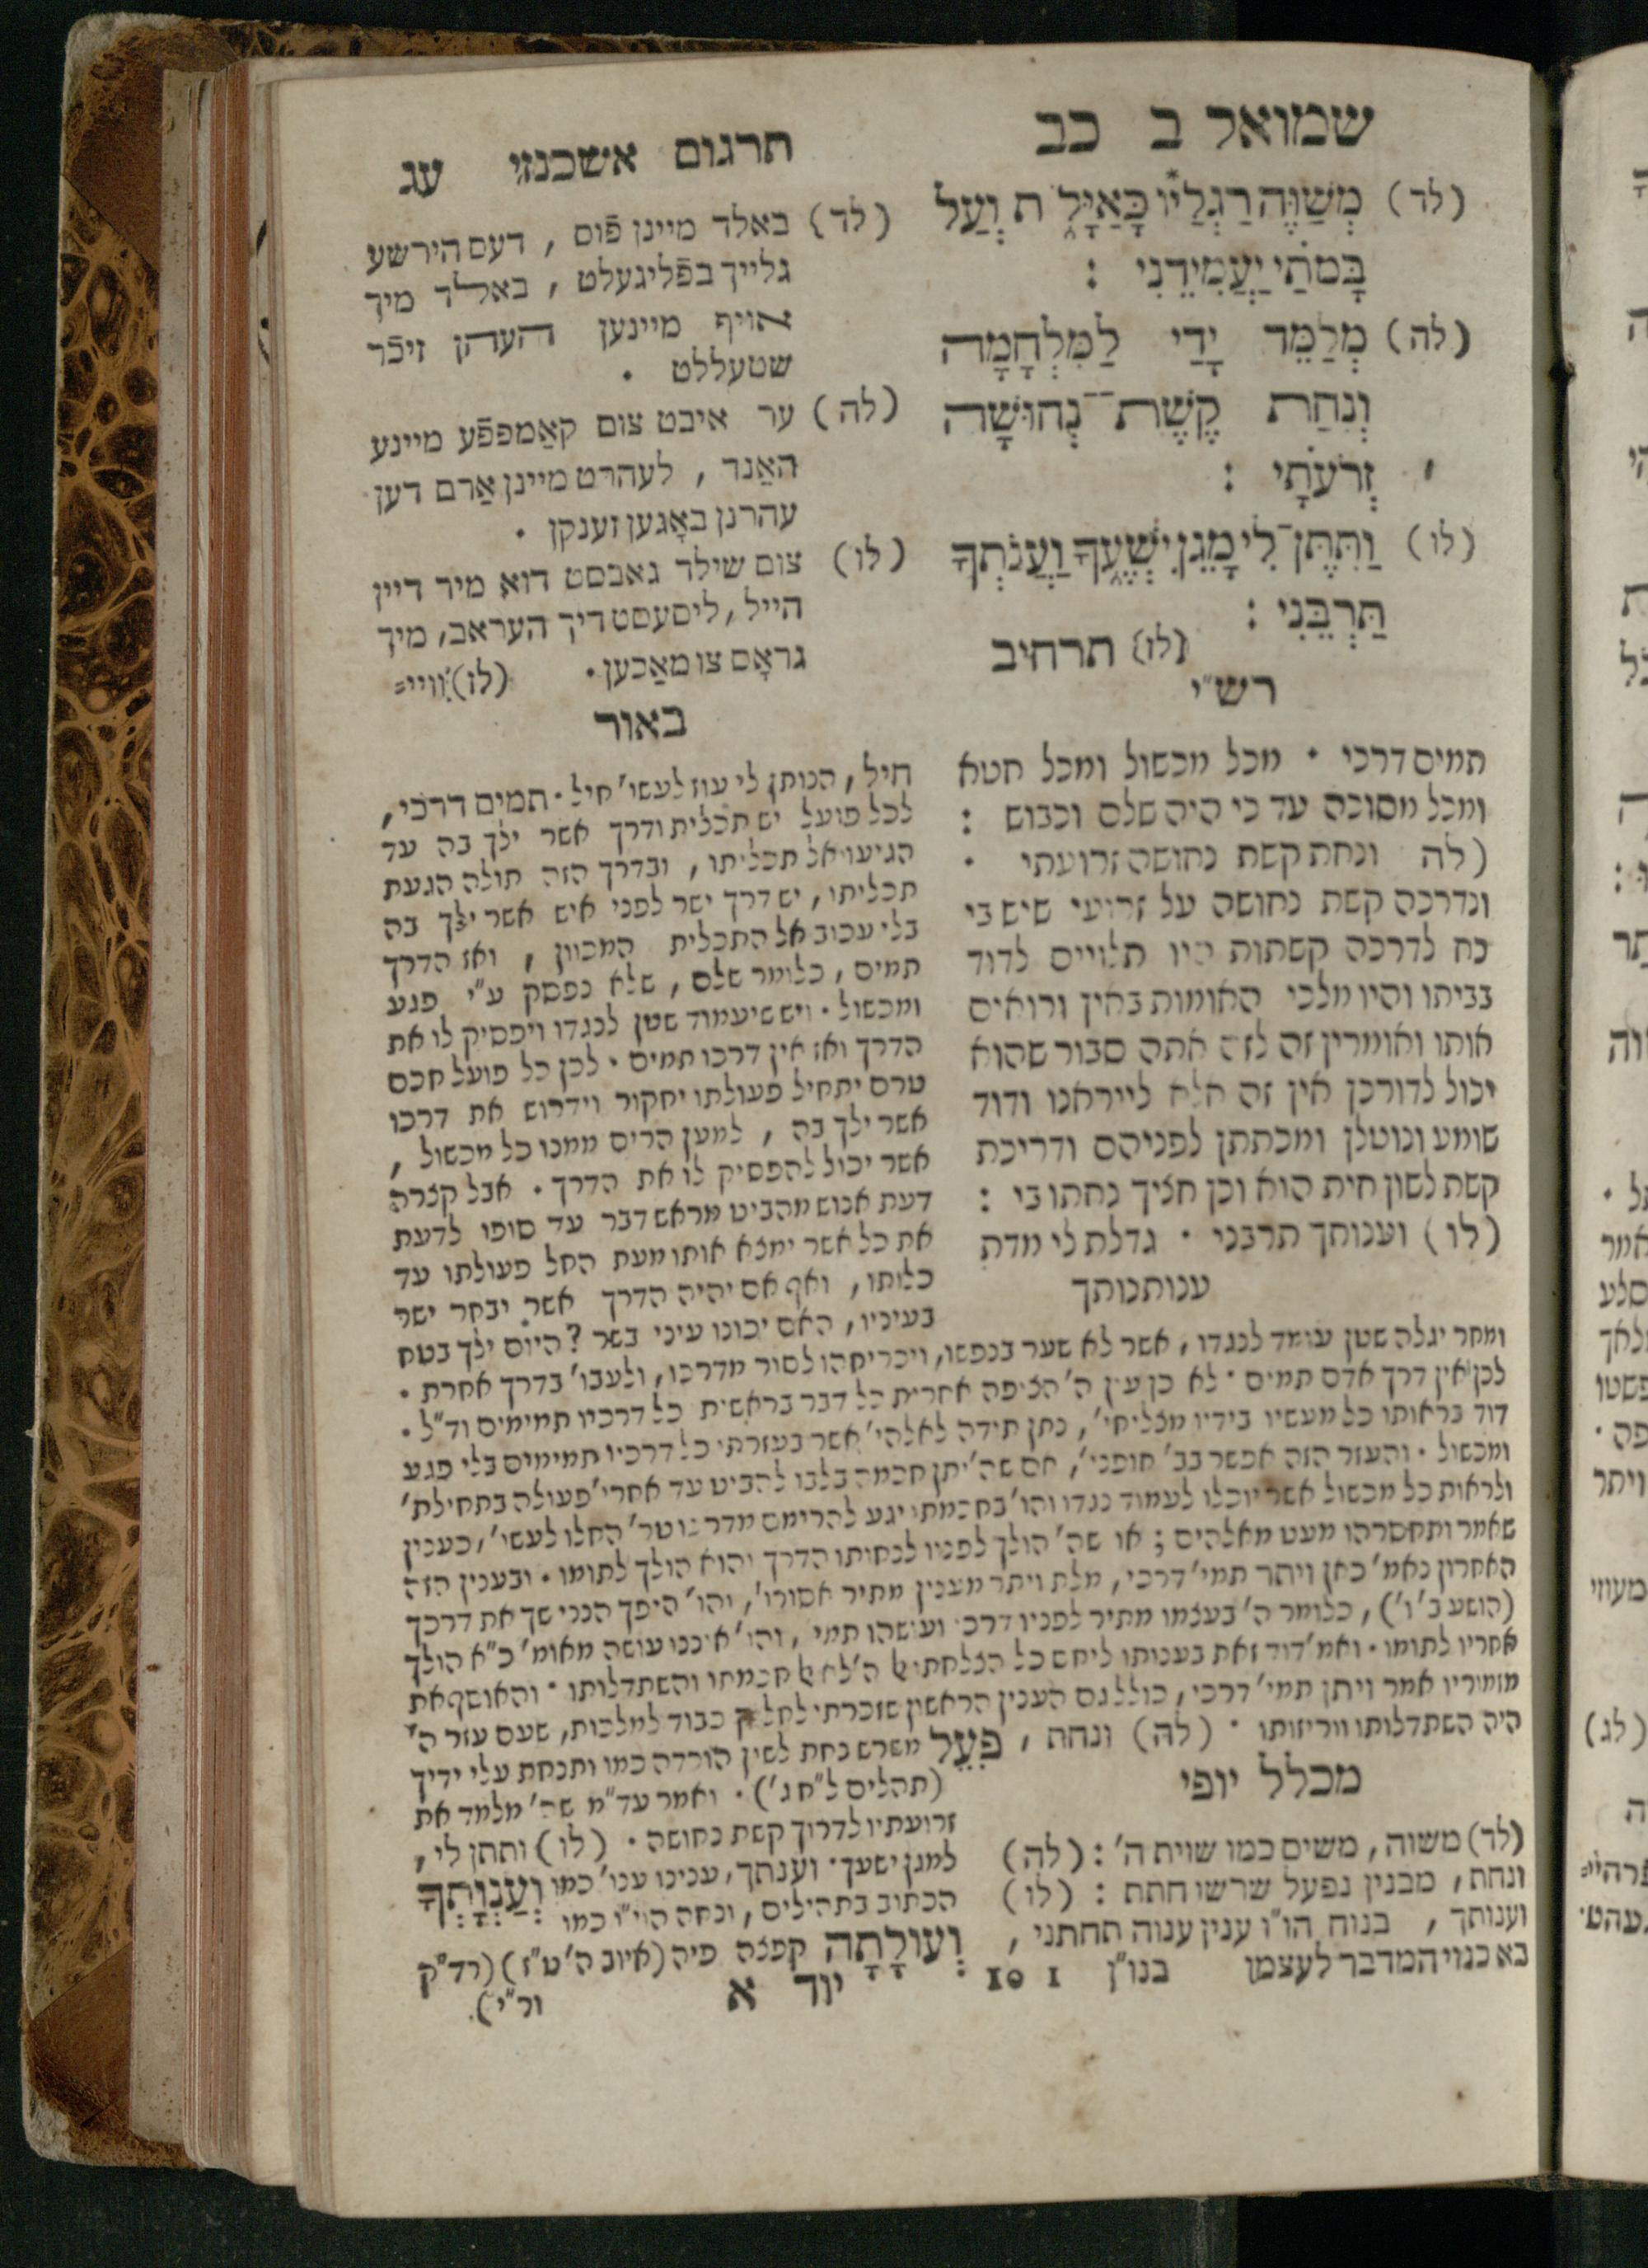 שמואל ב כב
תרגום אשכנזי עג
(לד) מְשַׁוֶּה רַגְלַיו כָּאַיָּלֹ ת וְעַל
בָּמֹתַי יַעֲמִידֵנִי :
(לה) מְלַמֵּד יָדַי לַמִּלְחָמָה
וְנִחַת קֶשֶׁת־־נְחוּשָׁה
זְרֹעֹתָי :
(לו) וַתִּתֶּן־לִי מָגֵן יִשְׁעֶךָ וַעֲנֹתְךָ
תַּרְבֵּנִי :
(לז) תרחיב
(לד) באלד מיינן פֿוס , דעם הירשע
גלייך בפֿליגעלט , באלד מיך
אויף מיינען העהן זיכֿר
שטעללט .
(לה) ער איבט צום קאַמפפֿע מיינע
האַנד , לעהרט מיינן אַרם דען
עהרנן באָגען זענקן .
(לו) צום שילד גאבסט דוא מיר דיין
הייל , ליסעסט דיך העראב, מיך
גראָס צו מאַכען . (לז) ווייא=
רש"י
תמים דרכי . מכל מכשול ומכל חטא
ומכל מסוכה עד כי היה שלם וכבוש :
(לה ונחת קשת נחושה זרועתי .
ונדרכה קשת נחושה על זרועי שיש בי
כח לדרכה קשתות היו תלויים לדוד
בביתו והיו מלכי האומות באין ורואים
אותו ואומרין זה לזה אתה סבור שהוא
יכול לדורכן אין זה אלא לייראנו ודוד
שומע ונוטלן ומכתתן לפניהם ודריכת
קשת לשון חית הוא וכן חציך נחתו בי :
(לו) וענותך תרבני . גדלת לי מדת
ענותנותך
באור
חיל , הנותן לי עוז לעשו' חיל . תמים דרכי ,
לכל פועל יש תכלית ודרך אשר ילך בה עד
הגיעו אל תכליתו , ובדרך הזה תולה הגעת
תכליתו , יש דרך ישר לפני איש אשר ילך בה
בלי עכוב אל התכלית המכוון , ואז הדרך
תמים , כלומר שלם , שלא נפסק ע"י פגע
ומכשול . ויש שיעמוד שטן לנגדו ויפסיק לו את
הדרך ואז אין דרכו תמים . לכן כל פועל חכם
טרם יתחיל פעולתו יחקור וידרוש את דרכו
אשר ילך בה , למען הרים ממנו כל מכשול ,
אשר יכול להפסיק לו את הדרך . אבל קצרה
דעת אנוש מהביט מראש דבר עד סופו לדעת
את כל אשר ימצא אותו מעת החל פעולתו עד
כלותו , ואף אם יהיה הדרך אשר יבחר ישר
בעיניו , האם יכונו עיני בשר ? היום ילך בטח
ומחר יגלה שטן עומד לנגדו , אשר לא שער בנפשו , ויכריחהו לסור מדרכו , ולעבו' בדרך אחרת .
לכן אין דרך אדם תמים . לא כן עין ה' הצופה אחרית כל דבר בראשית כל דרכיו תמימים וד"ל .
דוד בראותו כל מעשיו בידיו מצליחי' , נתן תודה לאלהי' אשר בעזרתו כל דרכיו תמימים בלי פגע
ומכשול . והעזר הזה אפשר בב' אופני' , אם שה' יתן חכמה בלבו להביט עד אחרי' פעולה בתחילת'
ולראות כל מכשול אשר יוכלו לעמוד נגדו והו' בחכמתו יגע להרימם מדרכו טר' החלו לעשו' , כענין
שאמר ותחסרהו מעט מאלהים ; או שה' הולך לפניו לנחותו הדרך והוא הולך לתומו . ובענין הזה
האחרון נאמ' כאן ויתר תמי' דרכי , מלת ויתר מענין מתיר אסורי' , והו' היפך הנני שך את דרכך
(הושע ב' ו') , כלומר ה' בעצמו מתיר לפניו דרכו ועושהו תמי' , והו' איננו עושה מאומ' כ"א הולך
אחריו לתומו . ואמ' דוד זאת בענותו ליחס כל הצלחתו אל ה' לא אל חכמתו והשתדלותו . והאוסף את
מזמוריו אמר ויתן תמי' דרכי , כולל גם הענין הראשון שזכרתי לחלוק כבוד למלכות , שעם עזר ה'
היה השתדלותו וזריזותו . (לה) ונחת , פִּעֵל משרש נחת לשון הורדה כמו ותנחת עלי ידיך
(תהלים ל"ח ג') . ואמר עד"מ שה' מלמד את
זרועתיו לדרוך קשת נחושה . (לו) ותתן לי ,
למגן ישעך . וענתך , ענינו ענו' כמו וְעַנְוָתְךָ
הכתוב בתהילים , ונחה הוי"ו כמו
וְעוֹלָתָה קפצה פיה (איוב ה' ט"ז) (רד"ק
ור"י) .
מכלל יופי
(לד) משוה , משים כמו שוית ה' : (לה)
ונחת , מבנין נפעל שרשו חתת : (לו)
וענותך , בנוח הו"ו ענין ענוה תחתני ,
בא כנוי המדבר לעצמן בנו"ן
10 1 יוד א